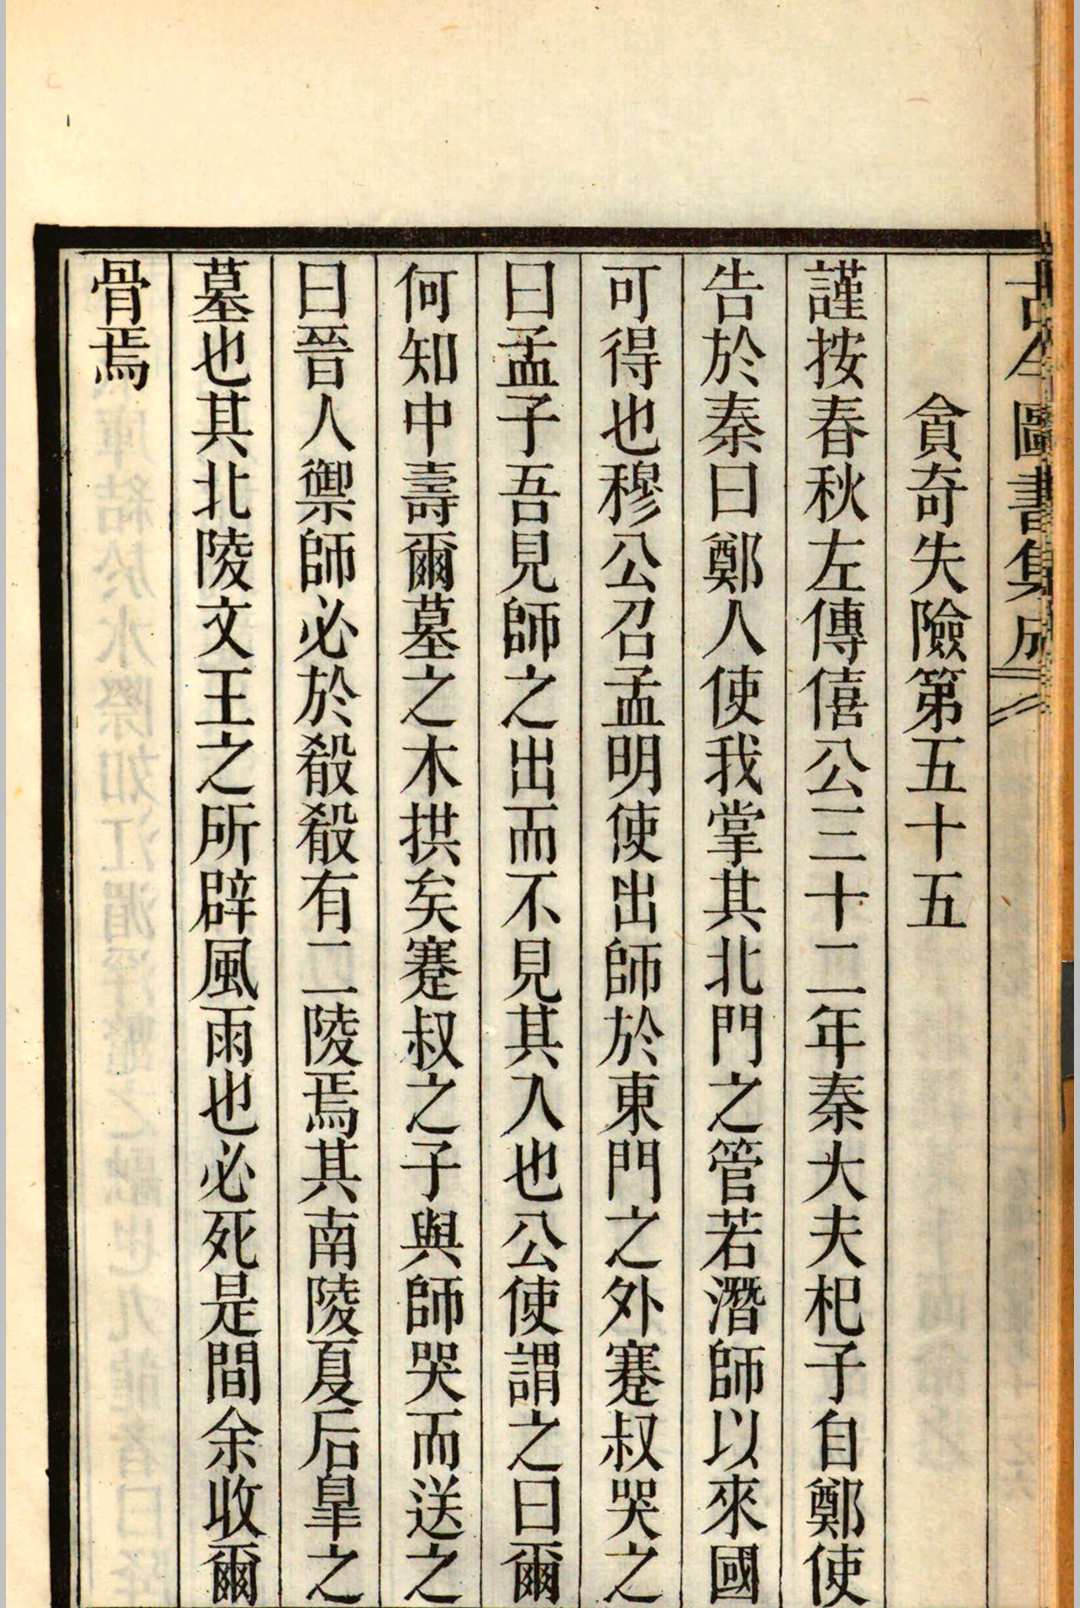 古今圖書集成
貪奇失險第五十五
謹按春秋左傳僖公三十二年秦大夫杞子自鄭使
告於秦曰鄭人使我掌其北門之管若潛師以來國
可得也穆公召孟明使出師於東門之外蹇叔哭之
曰孟子吾見師之出而不見其入也公使謂之曰爾
何知中壽爾墓之木拱矣蹇叔之子與師哭而送之
曰晉人禦師必於殽殽有二陵焉其南陵夏后皐之
墓也其北陵文王之所辟風雨也必死是間余收爾
骨焉